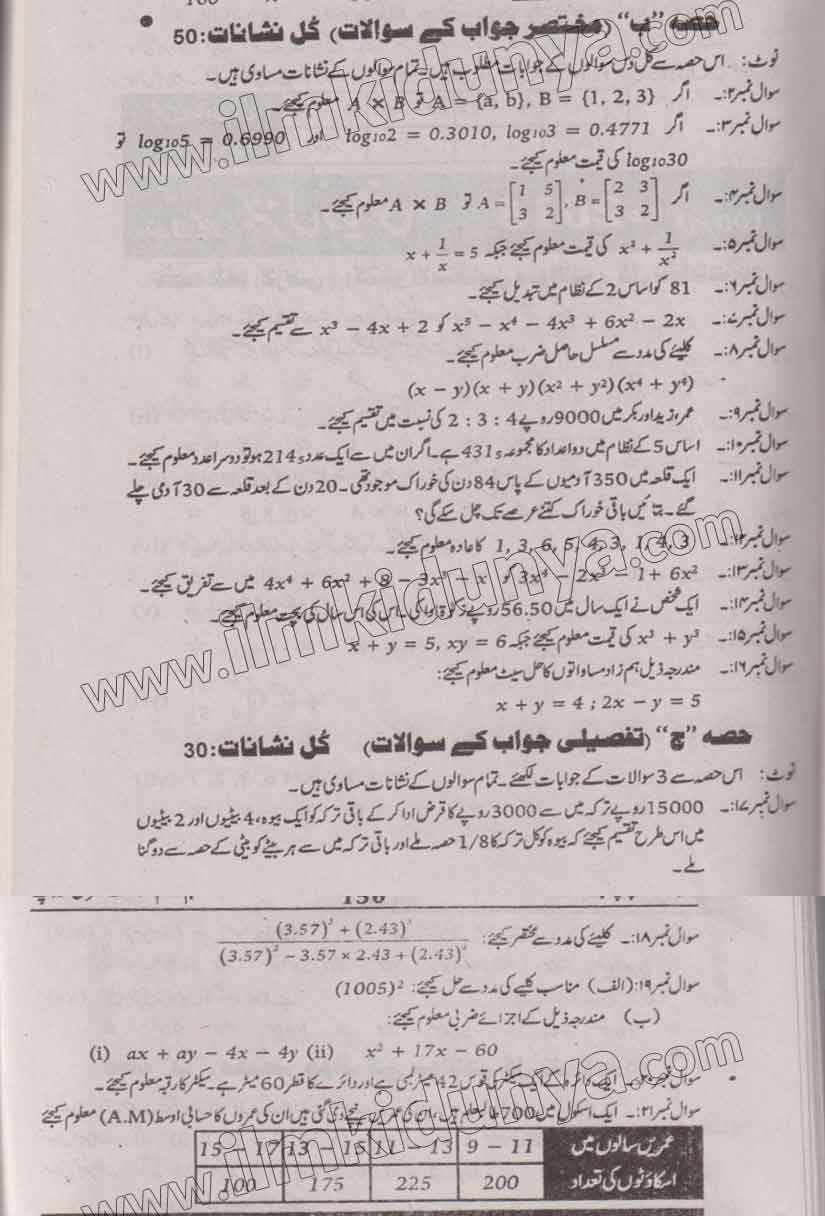 حصہ "ب" (مختصر جواب کے سوالات) کُل نشانات: 50
نوٹ: اس حصہ سے کل دس سوالوں کے جوابات مطلوب ہیں۔ تمام سوالوں کے نشانات مساوی ہیں۔
سوال نمبر۲:۔ اگر A = {a, b}, B = {1, 2, 3} تو A × B معلوم کیجئے۔
سوال نمبر۳:۔ اگر log₁₀2 = 0.3010, log₁₀3 = 0.4771 اور log₁₀5 = 0.6990 تو
log₁₀30 کی قیمت معلوم کیجئے۔
سوال نمبر۴:۔ اگر A = [1 5; 3 2], B = [2 3; 3 2] تو A × B معلوم کیجئے۔
سوال نمبر۵:۔ x² + 1/x² کی قیمت معلوم کیجئے جبکہ x + 1/x = 5
سوال نمبر۶:۔ 81 کو اساس 2 کے نظام میں تبدیل کیجئے۔
سوال نمبر۷:۔ x⁵ − x⁴ − 4x³ + 6x² − 2x کو x³ − 4x + 2 سے تقسیم کیجئے۔
سوال نمبر۸:۔ کلیئے کی مدد سے مسلسل حاصل ضرب معلوم کیجئے۔
(x − y)(x + y)(x² + y²)(x⁴ + y⁴)
سوال نمبر۹:۔ عمر، زید اور بکر میں 9000 روپے 4 : 3 : 2 کی نسبت میں تقسیم کیجئے۔
سوال نمبر۱۰:۔ اساس 5 کے نظام میں دو اعداد کا مجموعہ 431₅ ہے۔ اگر ان میں سے ایک عدد 214₅ ہو تو دوسرا عدد معلوم کیجئے۔
سوال نمبر۱۱:۔ ایک قلعہ میں 350 آدمیوں کے پاس 84 دن کی خوراک موجود تھی۔ 20 دن کے بعد قلعہ سے 30 آدمی چلے
گئے۔ بتائیں باقی خوراک کتنے عرصے تک چل سکے گی؟
سوال نمبر۱۲:۔ 1, 3, 6, 5, 4, 3, 1, 4, 3 کا عادہ معلوم کیجئے۔
سوال نمبر۱۳:۔ 3x⁴ − 2x³ − 1 + 6x² کو 4x⁴ + 6x² + 8 − 3x³ − x میں سے تفریق کیجئے۔
سوال نمبر۱۴:۔ ایک شخص نے ایک سال میں 56.50 روپے زکوٰۃ ادا کی۔ اس کی اس سال کی بچت معلوم کیجئے۔
سوال نمبر۱۵:۔ x³ + y³ کی قیمت معلوم کیجئے جبکہ x + y = 5, xy = 6
سوال نمبر۱۶:۔ مندرجہ ذیل ہم زاد مساواتوں کا حل سیٹ معلوم کیجئے:
x + y = 4 ; 2x − y = 5
حصہ "ج" (تفصیلی جواب کے سوالات) کُل نشانات: 30
نوٹ: اس حصہ سے 3 سوالات کے جوابات لکھئے۔ تمام سوالوں کے نشانات مساوی ہیں۔
سوال نمبر۱۷:۔ 15000 روپے ترکہ میں سے 3000 روپے کا قرض ادا کر کے باقی ترکہ کو ایک بیوہ، 4 بیٹیوں اور 2 بیٹیوں
میں اس طرح تقسیم کیجئے کہ بیوہ کو کل ترکہ کا 1/8 حصہ ملے اور باقی ترکہ میں سے ہر بیٹے کو بیٹی کے حصہ سے دوگنا
ملے۔
سوال نمبر۱۸:۔ کلیئے کی مدد سے مختصر کیجئے: ((3.57)³ + (2.43)³) / ((3.57)² − 3.57 × 2.43 + (2.43)²)
سوال نمبر۱۹: (الف) مناسب کلیے کی مدد سے حل کیجئے: (1005)²
(ب) مندرجہ ذیل کے اجزائے ضربی معلوم کیجئے:
(i) ax + ay − 4x − 4y (ii) x² + 17x − 60
سوال نمبر۲۰:۔ ایک دائرہ کے ایک سیکٹر کی قوس 42 میٹر لمبی ہے اور دائرے کا قطر 60 میٹر ہے۔ سیکٹر کا رقبہ معلوم کیجئے۔
سوال نمبر۲۱:۔ ایک اسکول میں 700 طالبعلم ہیں، ان کی عمریں نیچے دی گئی ہیں ان کی عمروں کا حسابی اوسط (A.M) معلوم کیجئے
عمریں سالوں میں 9 − 11 11 − 13 13 − 15 15 − 17
اسکاؤٹوں کی تعداد 200 225 175 100
www.ilmkidunya.com
www.ilmkidunya.com
www.ilmkidunya.com